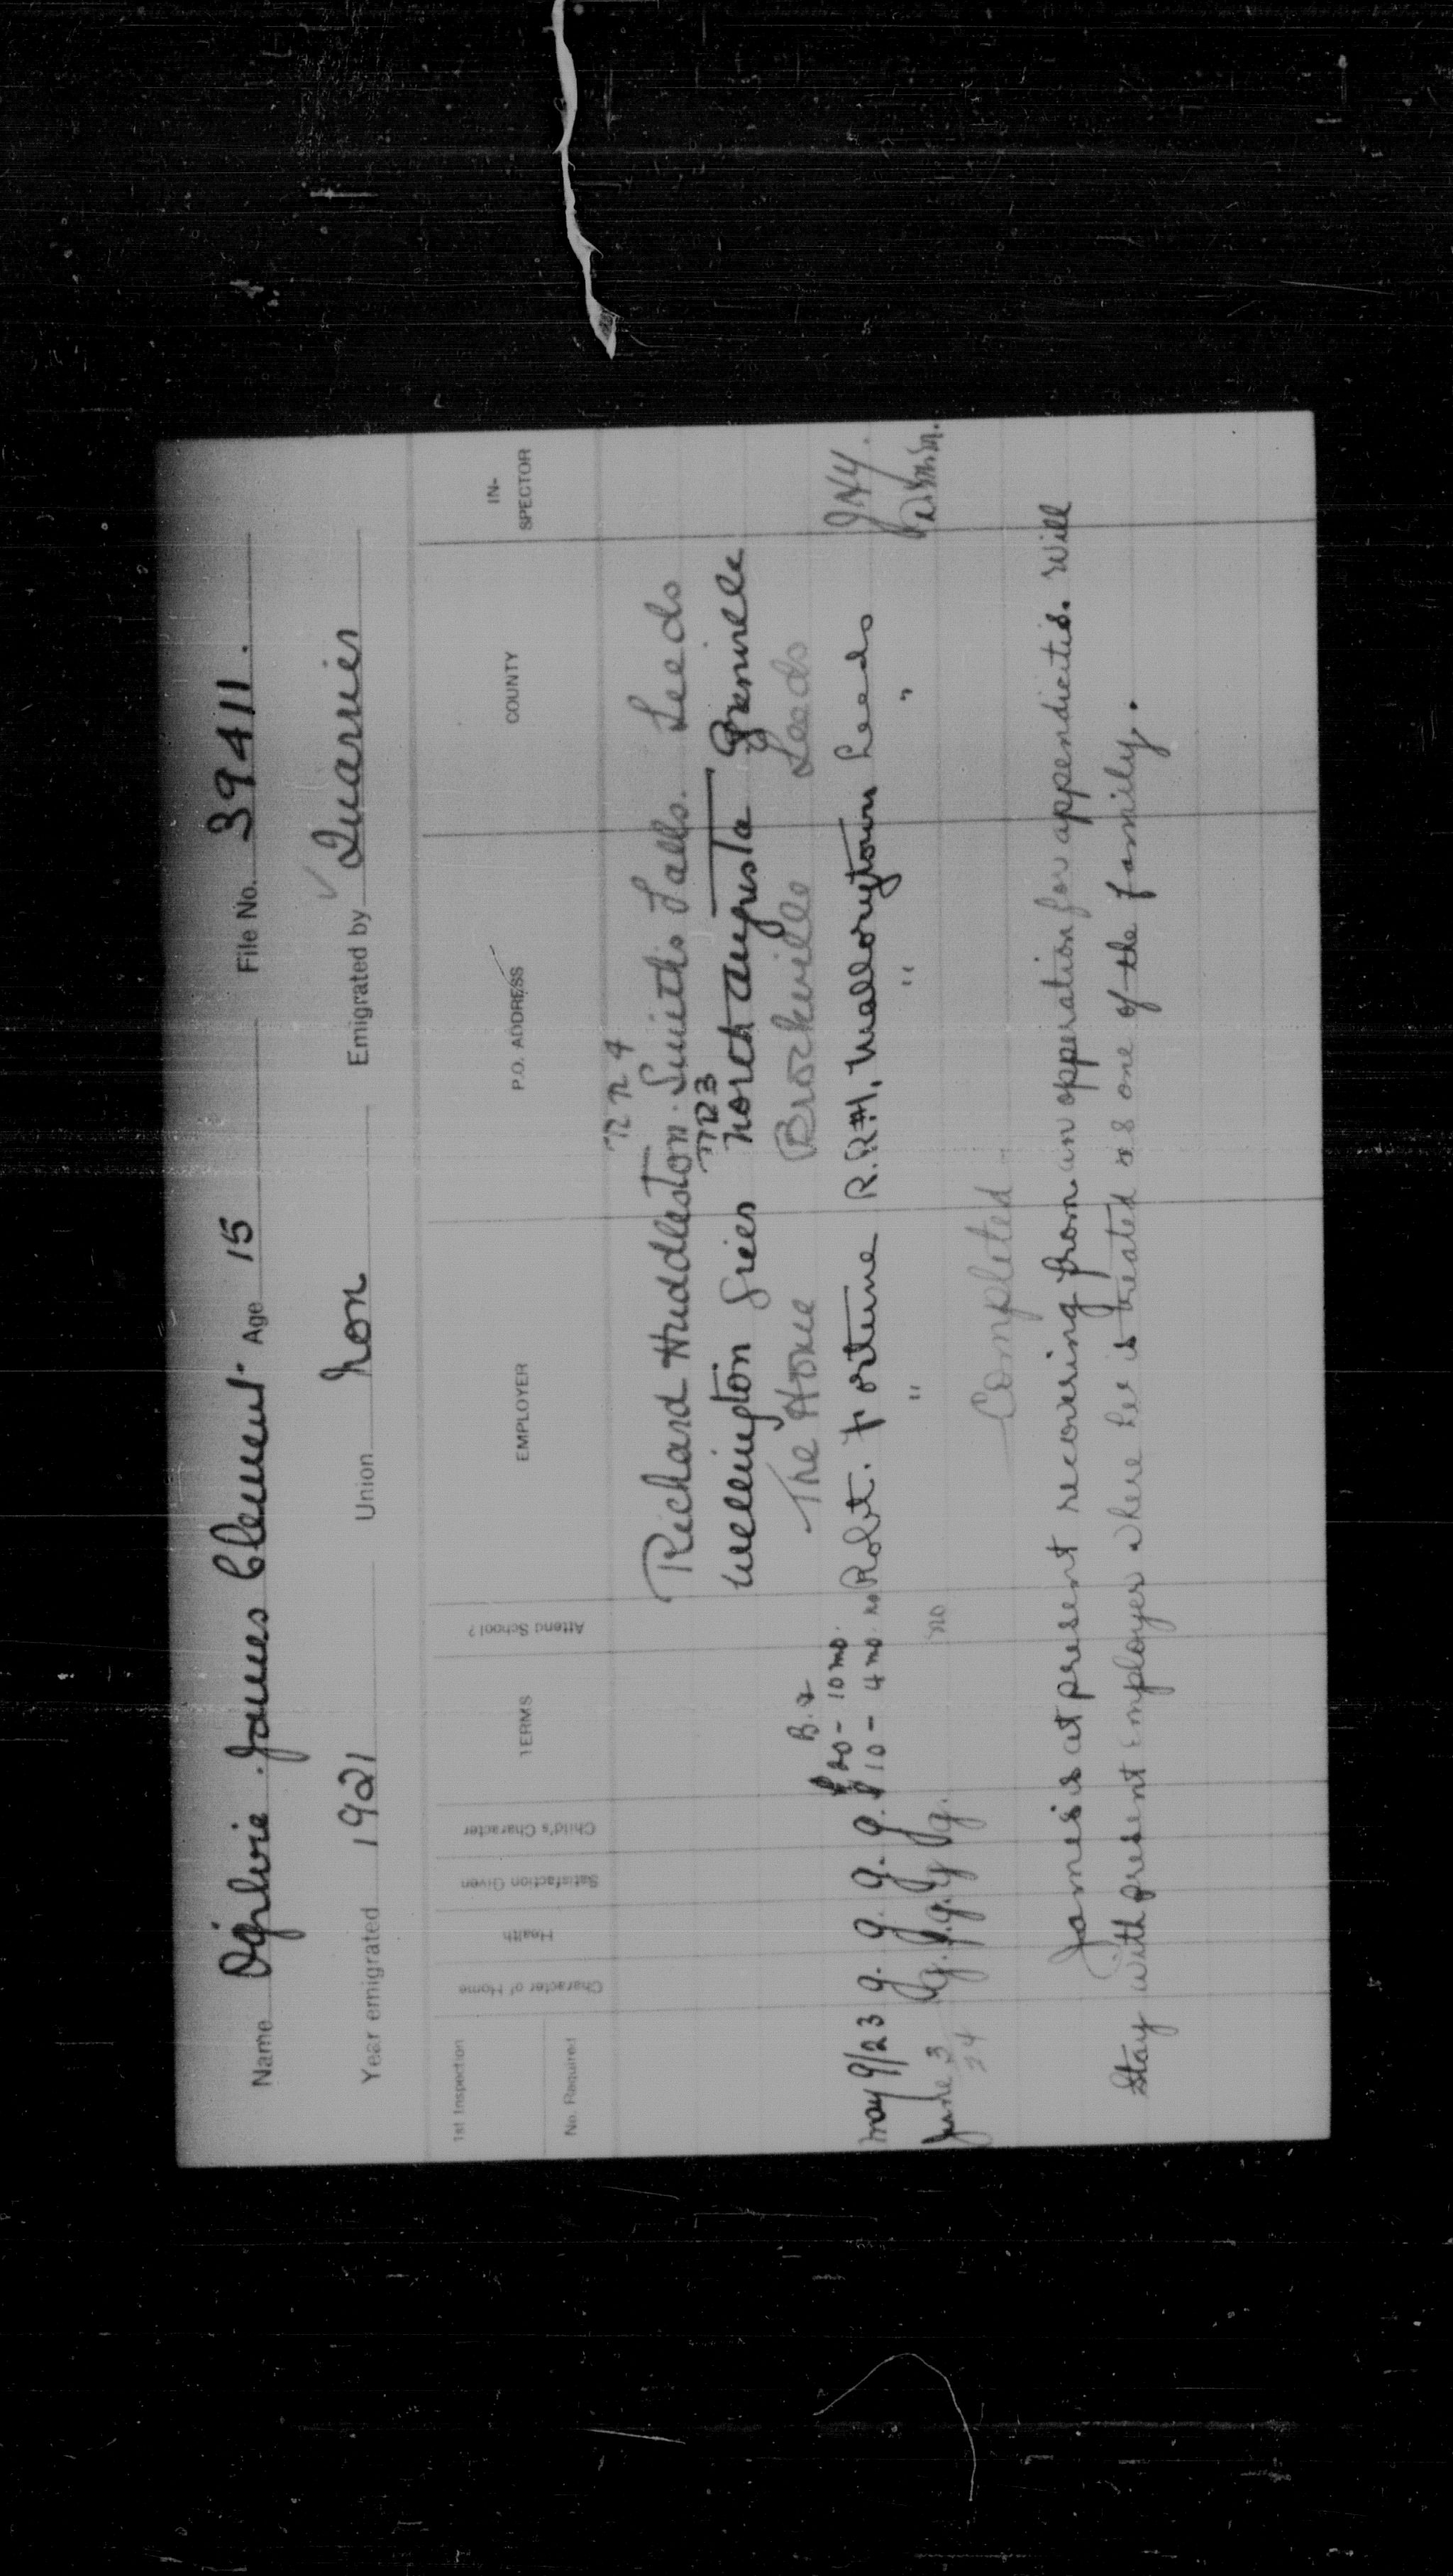 Name Ogilvie . James Clement. Age 15 File No. 39411.
Year emigrated 1921 Union Non Emigrated by Quarrier
1st Inspection
No. Required
Character of Home
Health
Satisfaction Given
Child's Character
TERMS
Attend School?
EMPLOYER
P.O. ADDRESS
COUNTY
IN-
SPECTOR
RR4
Richard Huddleston. Smiths Falls. Leeds
RR3
Wellington Grier North Augusta Grenville
The Home Brockville Leeds
$20 - 10 mo.
May 9/23 g. g. g. g. $10 - 4 mo. no Robt. Fortune R.R.#1, Mallorytown Leeds
June 3 g. g. g. g. no " " "
24
Completed
James is at present recovering from an opperation for appendicitis. Will
stay with present employer where he is treated as one of the family.